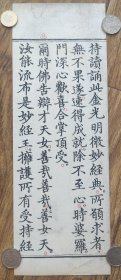 持讀誦此金光明微妙經典所願求者
無不果遂速得成就除不至心時婆羅
門深心歡喜合掌頂受
爾時佛告辯才天女善哉善哉善女天
汝能流布是妙經王擁護所有受持經